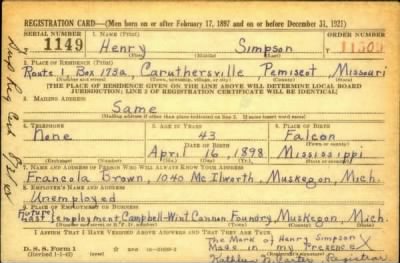 REGISTRATION CARD—(Men born on or after February 17, 1897 and on or before December 31, 1921)
SERIAL NUMBER 1. NAME (Print) ORDER NUMBER
1149 Henry Simpson 11509
(First) (Middle) (Last)
2. PLACE OF RESIDENCE (Print)
Route 1, Box 173a, Caruthersville Pemiscot Missouri
(Number and street) (Town, township, village, or city) (County) (State)
[THE PLACE OF RESIDENCE GIVEN ON THE LINE ABOVE WILL DETERMINE LOCAL BOARD
JURISDICTION; LINE 2 OF REGISTRATION CERTIFICATE WILL BE IDENTICAL]
3. MAILING ADDRESS
Same
[Mailing address if other than place indicated on line 2. If same insert word same]
4. TELEPHONE 5. AGE IN YEARS 6. PLACE OF BIRTH
None 43 Falcon
DATE OF BIRTH (Town or county)
April 16, 1898 Mississippi
(Mo.) (Day) (Yr.) (State or country)
7. NAME AND ADDRESS OF PERSON WHO WILL ALWAYS KNOW YOUR ADDRESS
Francola Brown, 1040 McIlworth, Muskegon, Mich.
8. EMPLOYER'S NAME AND ADDRESS
Unemployed
Future
employment Campbell-Wint Cannon Foundry, Muskegon, Mich.
I AFFIRM THAT I HAVE VERIFIED ABOVE ANSWERS AND THAT THEY ARE TRUE.
The Mark of Henry Simpson
D. S. S. Form 1 Made in my Presence X
(Revised 1-1-42) Registrar